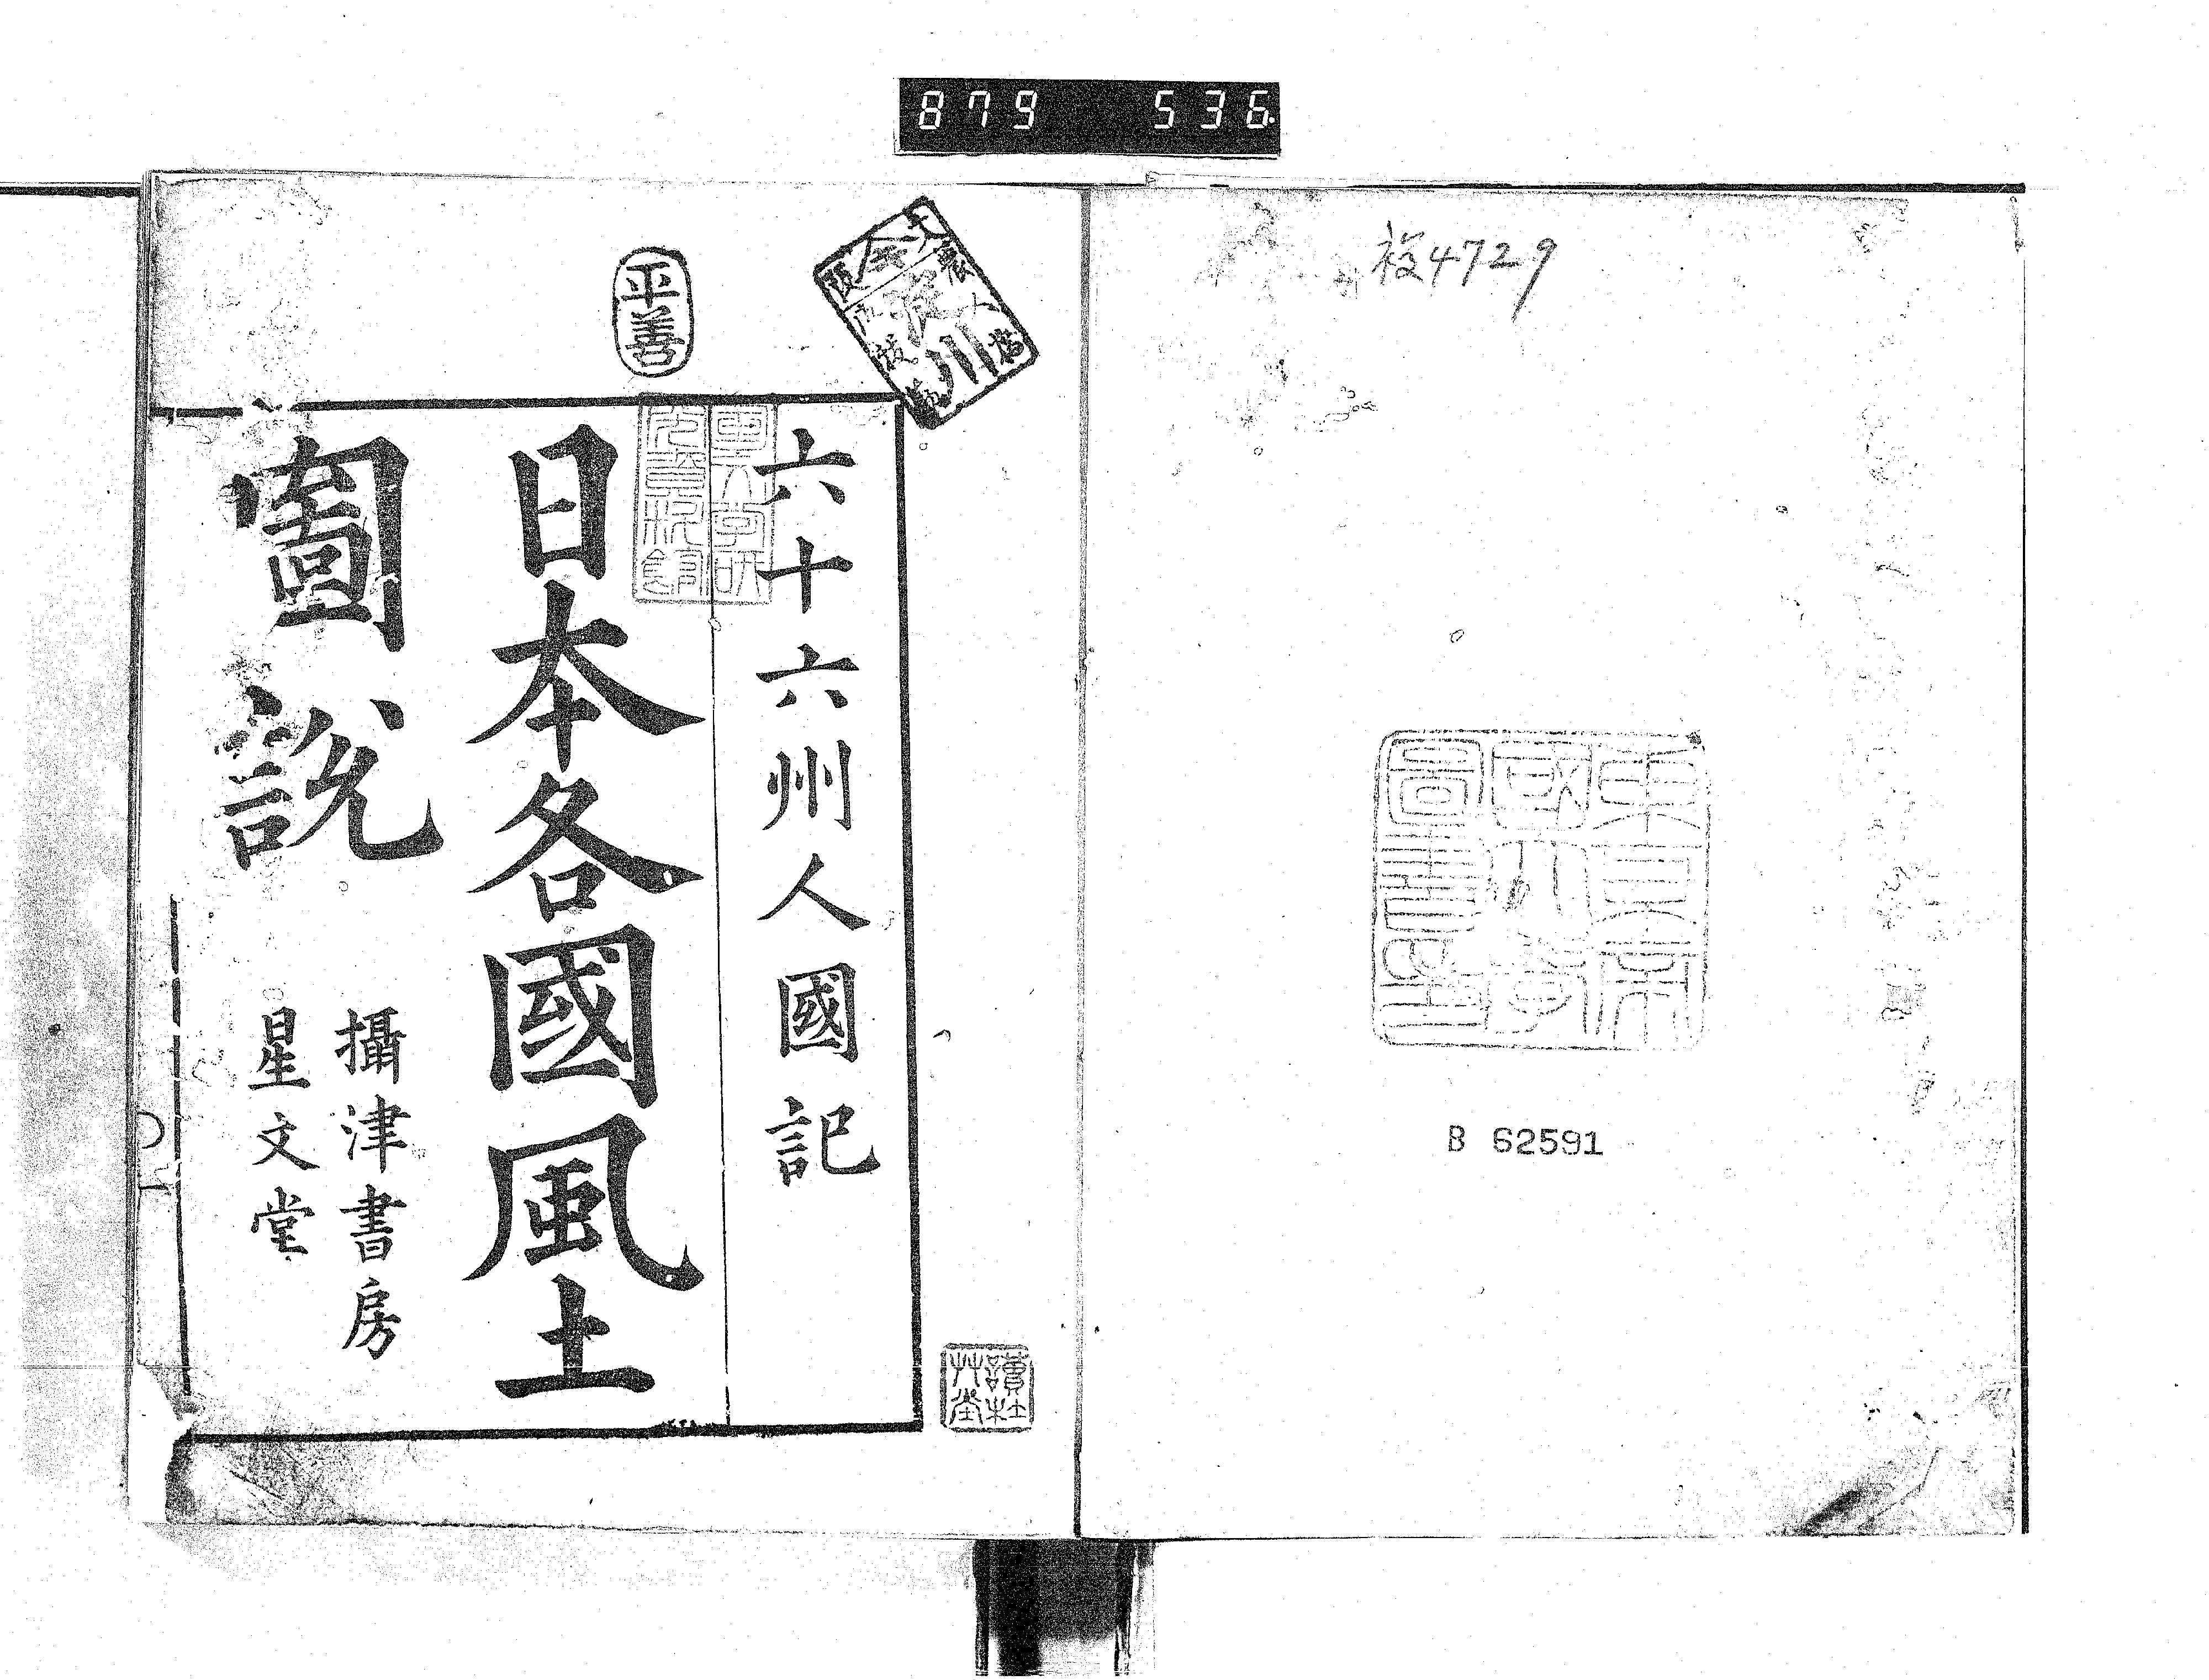 879 536.
複4729
東京帝
國大學
圖書印
B 62591
平善
六十六州人國記
日本各國風土
圖說
攝津書房
星文堂
讀杜
艸堂